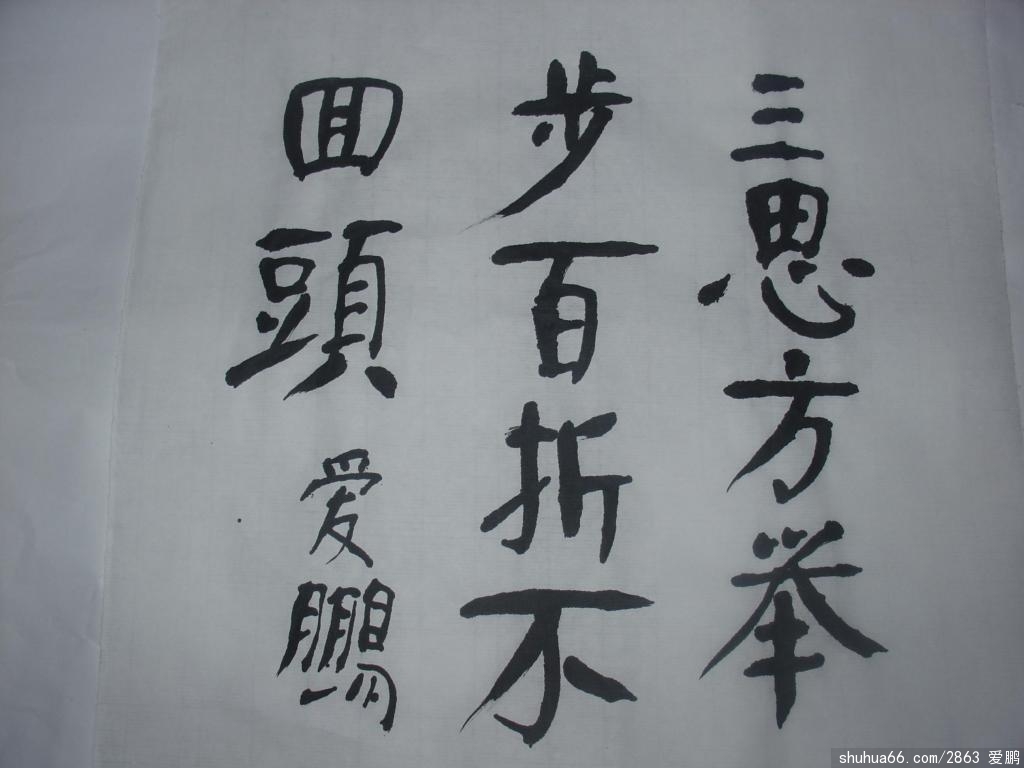 三思方举
步百折不
囬頭
爱鹏
shuhua66.com/2863 爱鹏